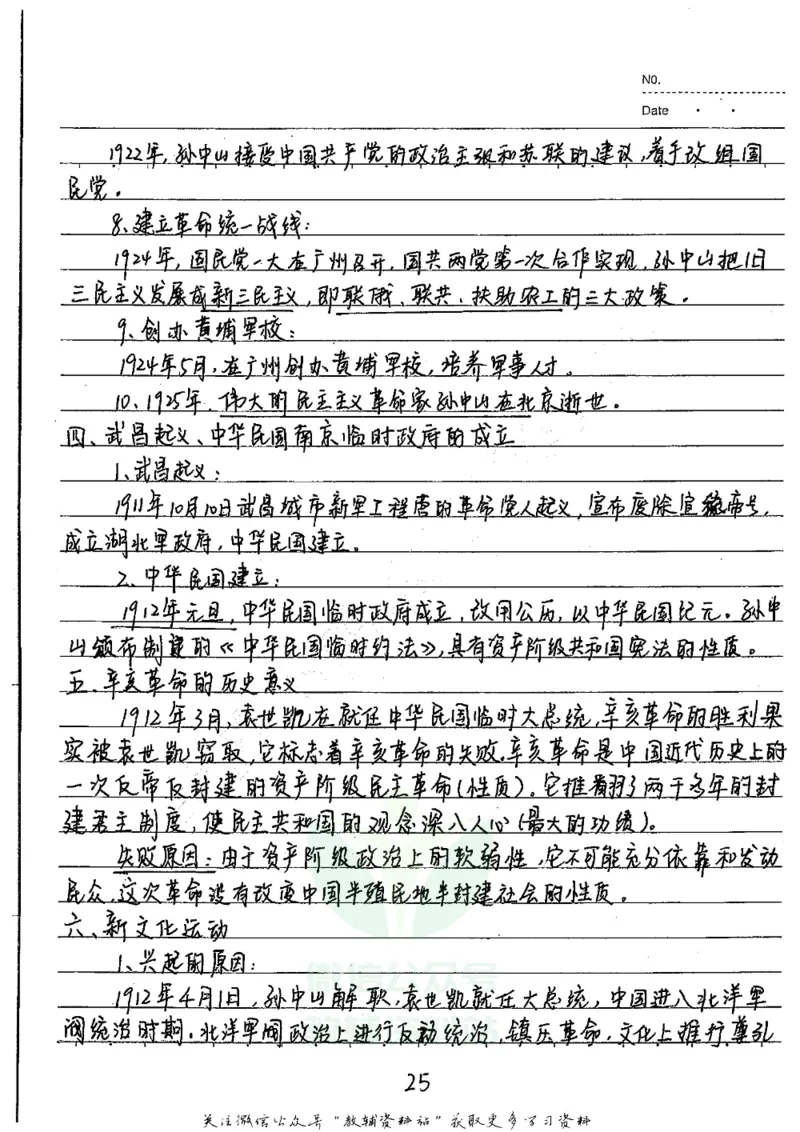 NO.
Date
1922年,孙中山接受中国共产党的政治主张和苏联的建议,着手改组国
民党。
8、建立革命统一战线:
1924年,国民党一大在广州召开,国共两党第一次合作实现,孙中山把旧
三民主义发展成新三民主义,即联俄、联共、扶助农工的三大政策。
9、创办黄埔军校:
1924年5月,在广州创办黄埔军校,培养军事人才。
10、1925年,伟大的民主主义革命家孙中山在北京逝世。
四、武昌起义、中华民国南京临时政府的成立
1、武昌起义:
1911年10月10日武昌城市新军工程营的革命党人起义,宣布废除宣统帝号,
成立湖北军政府,中华民国建立。
2、中华民国建立:
1912年元旦,中华民国临时政府成立,改用公历,以中华民国纪元。孙中
山颁布制定的《中华民国临时约法》,具有资产阶级共和国宪法的性质。
五、辛亥革命的历史意义
1912年3月,袁世凯在就任中华民国临时大总统,辛亥革命的胜利果
实被袁世凯窃取,它标志着辛亥革命的失败.辛亥革命是中国近代历史上的
一次反帝反封建的资产阶级民主革命(性质)。它推翻了两千多年的封
建君主制度,使民主共和国的观念深入人心(最大的功绩)。
失败原因:由于资产阶级政治上的软弱性,它不可能充分依靠和发动
民众,这次革命没有改变中国半殖民地半封建社会的性质。
六、新文化运动
1、兴起的原因:
1912年4月1日,孙中山解职,袁世凯就任大总统,中国进入北洋军
阀统治时期.北洋军阀政治上进行反动统治,镇压革命,文化上推行尊孔
25
关注微信公众号"教辅资料站"获取更多学习资料